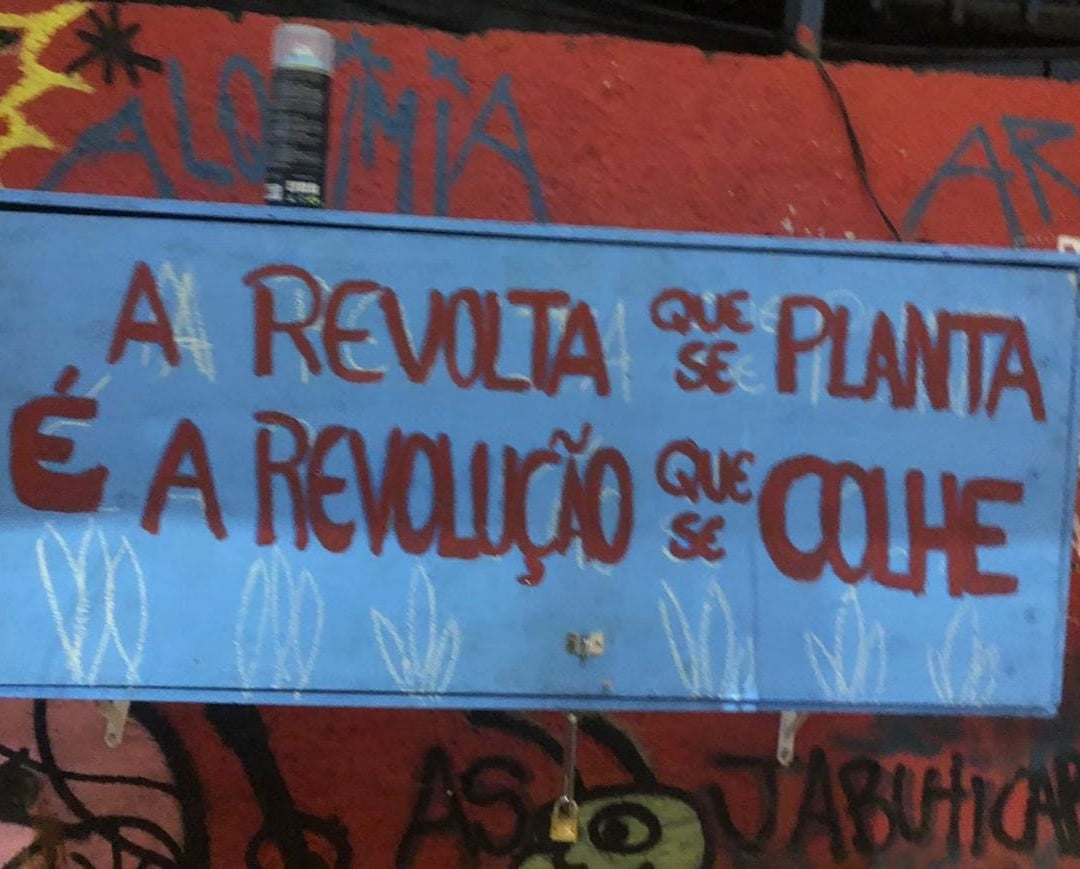 ALQUIMIA
AR
A REVOLTA QUE SE PLANTA
É A REVOLUÇÃO QUE SE COLHE
AS JABUTICAB